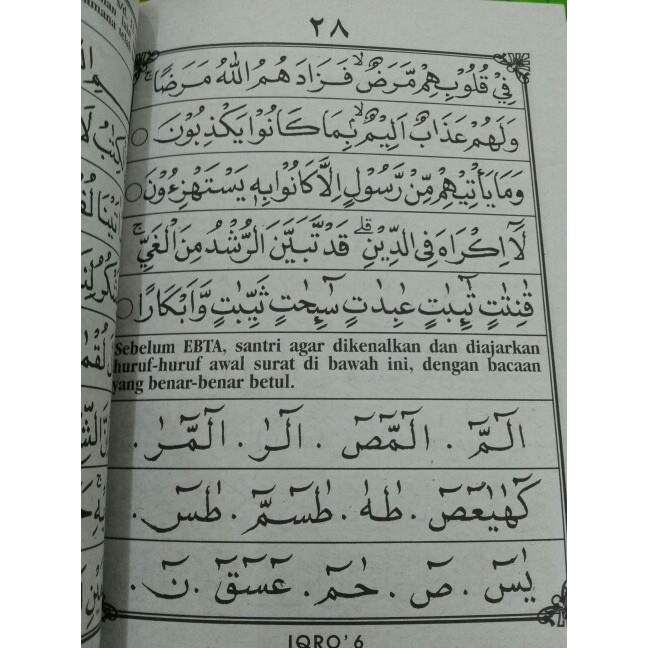 ٢٨
فِيْ قُلُوْبِهِمْ مَّرَضٌ ۙ فَزَادَهُمُ اللّٰهُ مَرَضًا ۚ
وَلَهُمْ عَذَابٌ اَلِيْمٌ ۙ بِمَا كَانُوْا يَكْذِبُوْنَ ○
وَمَا يَأْتِيْهِمْ مِّنْ رَّسُوْلٍ اِلَّا كَانُوْا بِهٖ يَسْتَهْزِءُوْنَ ○
لَآ اِكْرَاهَ فِى الدِّيْنِ ۗ قَدْ تَّبَيَّنَ الرُّشْدُ مِنَ الْغَيِّ ۚ
قٰنِتٰتٍ تٰۤىِٕبٰتٍ عٰبِدٰتٍ سٰۤىِٕحٰتٍ ثَيِّبٰتٍ وَّاَبْكَارًا ○
Sebelum EBTA, santri agar dikenalkan dan diajarkan
huruf-huruf awal surat di bawah ini, dengan bacaan
yang benar-benar betul.
الٓمّٓ . الٓمّٓصٓ . الٓرٰ . الٓمّٓرٰ .
كٓهٰيٰعٓصٓ . طٰهٰ . طٰسٓمّٓ . طٰسٓ .
يٰسٓ . صٓ . حٰمٓ . عٓسٓقٓ . نٓ .
IQRO' 6